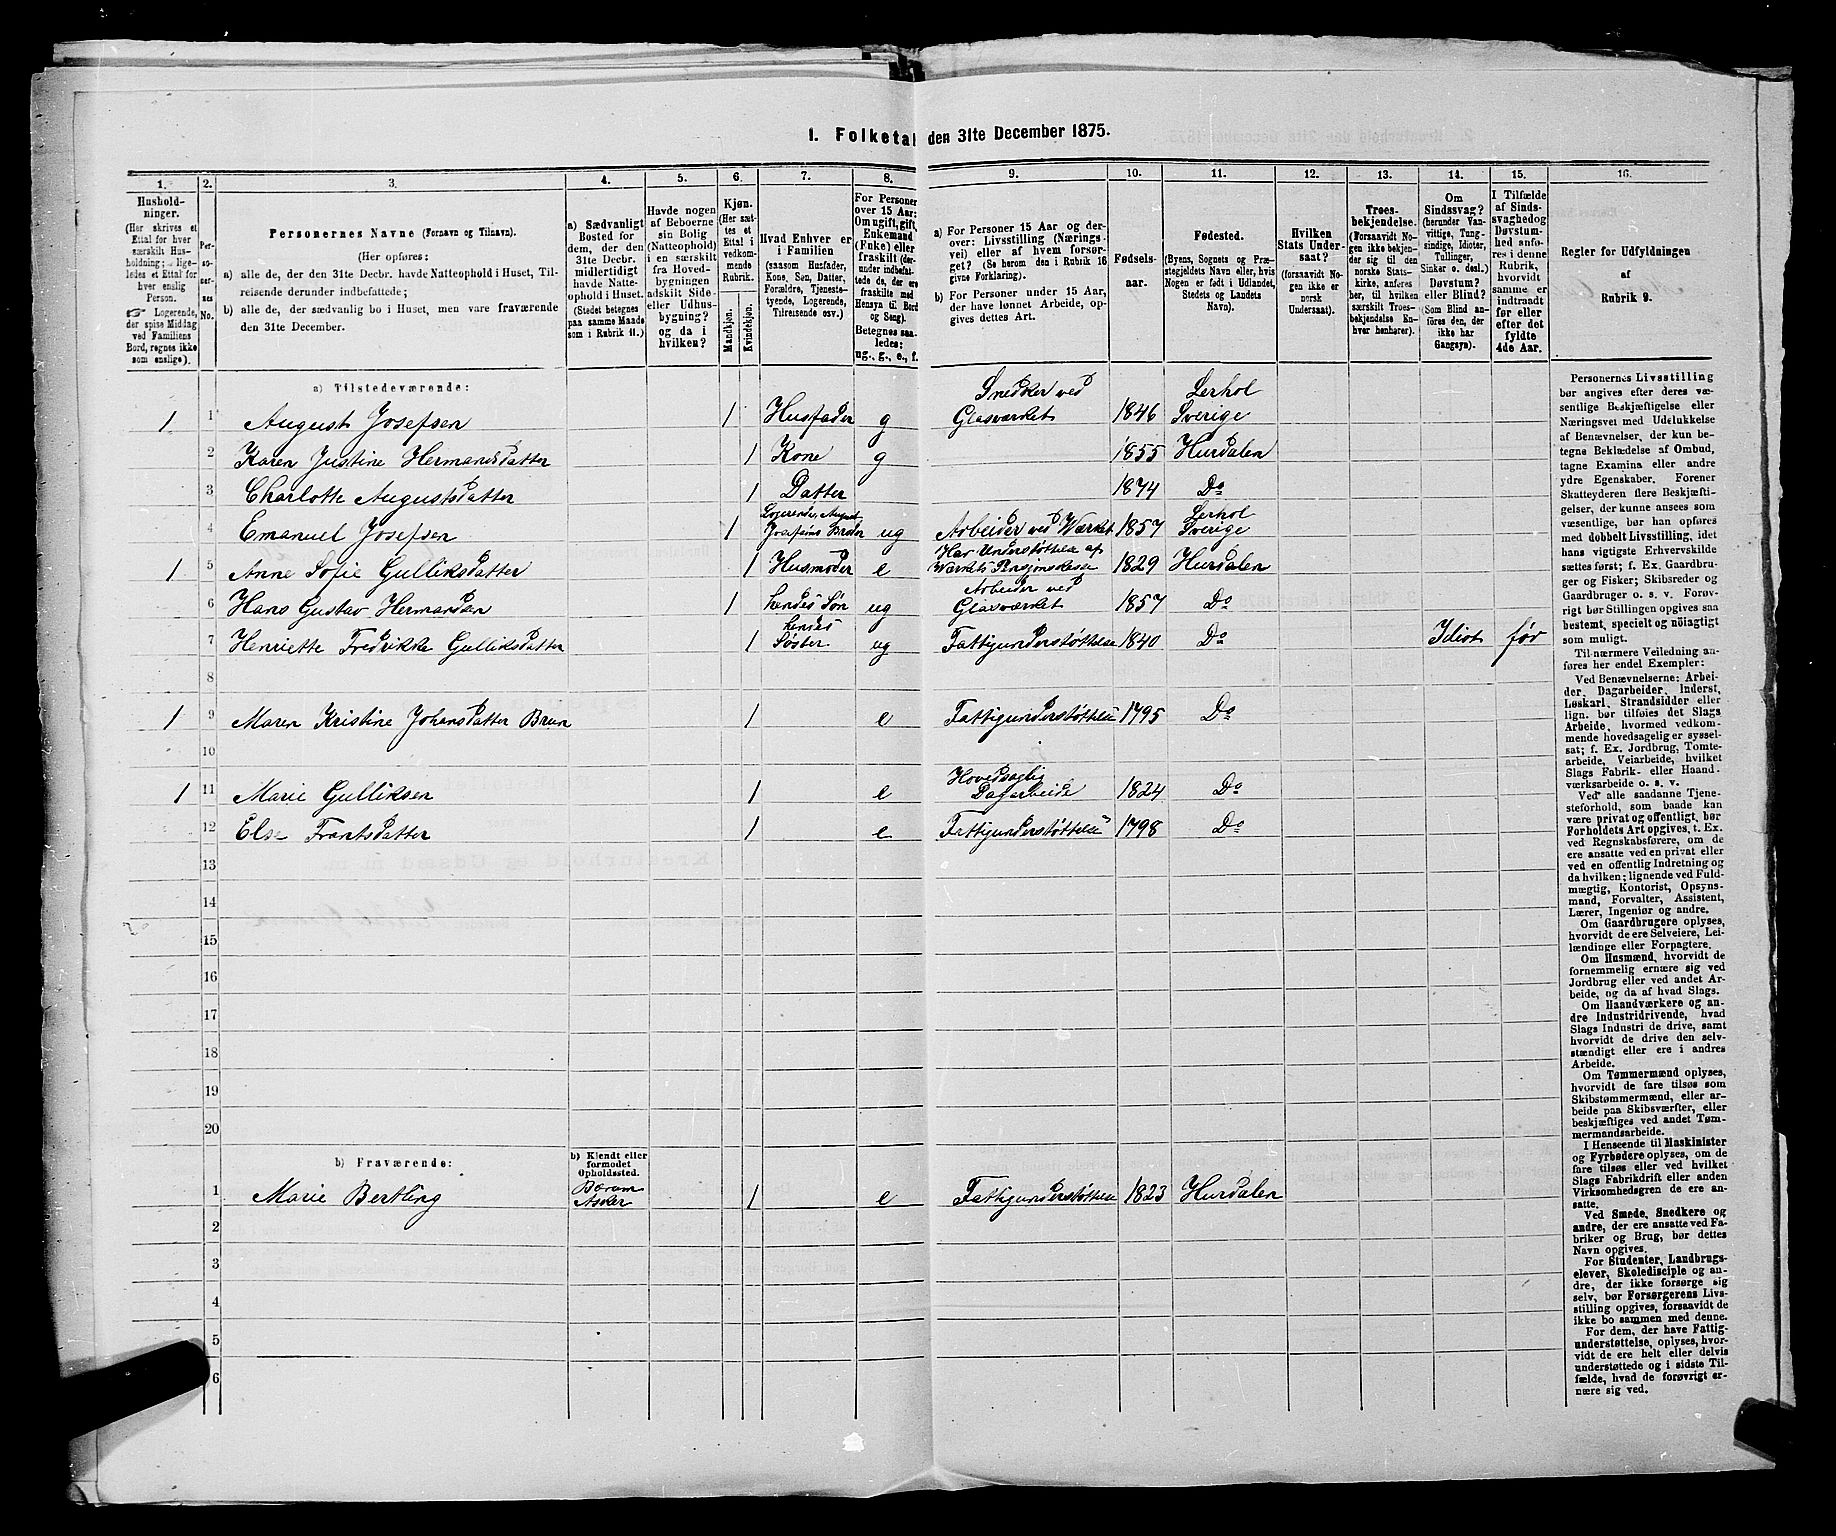 1. Folketal den 31te December 1875.
1. 2. 3. 4. 5. 6. 7. 8. 9. 10. 11. 12. 13. 14. 15. 16.
Hushold-
ninger.
(Her skrives et
Ettal for hver
særskilt Hus-
holdning; lige-
ledes et Ettal for
hver enslig
Person.
☞ Logerende,
der spise Middag
ved Familiens
Bord, regnes ikke
som enslige).
Per-
so-
ner-
nes
No.
Personernes Navne (Fornavn og Tilnavn).
(Her opføres:
a) alle de, der den 31te Decbr. havde Natteophold i Huset, Til-
reisende derunder indbefattede;
b) alle de, der sædvanlig bo i Huset, men vare fraværende
den 31te December.
a) Sædvanligt
Bosted for
dem, der den
31te Decbr.
midlertidigt
havde Natte-
ophold i Huset.
(Stedet betegnes
paa samme Maade
som i Rubrik 11.)
Havde nogen
af Beboerne
sin Bolig
(Natteophold)
i en særskilt
fra Hoved-
bygningen
adskilt Side-
eller Udhus-
bygning?
og da i
hvilken?
Kjøn.
(Her sæt-
tes et
Ettal i
vedkom-
mende
Rubrik.
Mandkjøn.
Kvindekjøn.
Hvad Enhver er
i Familien
(saasom Husfader,
Kone, Søn, Datter,
Forældre, Tjeneste-
tyende, Logerende,
Tilreisende osv.)
For Personer
over 15 Aar:
Om ugift, gift,
Enkemand
(Enke) eller
fraskilt (der-
under indbefat-
tede de, der ere
fraskilte med
Hensyn til Bord
og Seng).
Betegnes saa-
ledes:
ug., g., e., f.
a) For Personer 15 Aar og der-
over: Livsstilling (Nærings-
vei) eller af hvem forsør-
get? (Se herom den i Rubrik 16
givne Forklaring).
b) For Personer under 15 Aar,
der have lønnet Arbeide, op-
gives dettes Art.
Fødsels-
aar.
Fødested.
(Byens, Sognets og Præ-
stegjeldets Navn eller, hvis
Nogen er født i Udlandet,
Stedets og Landets
Navn).
Hvilken
Stats Under-
saat?
(forsaavidt No-
gen ikke er
norsk
Undersaat).
Troes-
bekjendelse.
(Forsaavidt No-
gen ikke bekjen-
der sig til den
norske Stats-
kirke, anføres
her, til hvilken
særskilt Troes-
bekjendelse En-
hver henhører).
Om
Sindssvag?
(herunder Van-
vittige, Tung-
sindige, Idioter,
Tullinger,
Sinker o. desl.)
Døvstum?
eller Blind?
(Som Blind an-
føres den, der
ikke har
Gangsyn).
I Tilfælde
af Sinds-
svaghedog
Døvstum-
hed anfø-
res i denne
Rubrik,
hvorvidt
samme er
indtraadt
før eller
efter det
fyldte
4de Aar.
Regler for Udfyldningen
af
Rubrik 9.
a) Tilstedeværende:
Snedker ved Lerhol
1 1 August Josefsen 1 Husfader g Glasværket 1846 Sverige
2 Karen Justine Hermansdatter 1 Kone g 1855 Hurdalen
3 Charlotte Augustsdatter 1 Datter 1874 Do
Logerende, August Lerhol
4 Emanuel Josefsen 1 Josefsens Broder ug Arbeider ved Værket 1857 Sverige
Har Understøttelse af
1 5 Anne Sofie Gulliksdatter 1 Husmoder e Værkets Pensjonskasse 1829 Hurdalen
Arbeider ved
6 Hans Gustav Hermansen 1 hendes Søn ug Glasværket 1857 Do
hendes
7 Henriette Fredrikke Gulliksdatter 1 Søster ug Fattigunderstøttelse 1840 Do Idiot før
8
1 9 Maren Kristine Johansdatter Brun 1 e Fattigunderstøttelse 1795 Do
10
Hovedsaglig
1 11 Marie Gulliksen 1 e Dagarbeide 1824 Do
12 Else Frantsdatter 1 e Fattigunderstøttelse 1798 Do
13
14
15
16
17
18
19
20
b) Fraværende:
b) Kjendt eller
formodet
Opholdssted.
Bærum
1 Marie Bertling Asker 1 e Fattigunderstøttelse 1823 Hurdalen
2
3
4
5
6
Personernes Livsstilling
bør angives efter deres væ-
sentlige Beskjæftigelse eller
Næringsvei med Udelukkelse
af Benævnelser, der kun be-
tegne Beklædelse af Ombud,
tagne Examina eller andre
ydre Egenskaber. Forener
Skatteyderen flere Beskjæfti-
gelser, der kunne ansees som
væsentlige, bør han opføres
med dobbelt Livsstilling, idet
hans vigtigste Erhvervskilde
sættes først; f. Ex. Gaardbru-
ger og Fisker; Skibsreder og
Gaardbruger o. s. v. Forøv-
rigt bør Stillingen opgives saa
bestemt, specielt og nöiagtigt
som muligt.
Til nærmere Veiledning an-
føres her endel Exempler:
Ved Benævnelserne: Arbei-
der, Dagarbeider, Inderst,
Løskarl, Strandsidder eller
lign. bør tilføies det Slags
Arbeide, hvormed vedkom-
mende hovedsagelig er syssel-
sat; f. Ex. Jordbrug, Tomte-
arbeide, Veiarbeide, hvilket
Slags Fabrik- eller Haand-
værksarbeide o. s. v.
Ved alle saadanne Tjene-
steforhold, som baade kan
være privat og offentligt, bør
Forholdets Art opgives, t. Ex.
ved Regnskabsførere, om de
ere ansatte ved en privat eller
ved en offentlig Indretning og
da hvilken; lignende ved Fuld-
mægtig, Kontorist, Opsyns-
mand, Forvalter, Assistent,
Lærer, Ingeniør og andre.
Om Gaardbrugere oplyses,
hvorvidt de ere Selveiere, Lei-
lændinge eller Forpagtere.
Om Husmænd, hvorvidt de
fornemmelig ernære sig ved
Jordbrug eller ved andet Ar-
beide, og da af hvad Slags.
Om Haandværkere og an-
dre Industridrivende, hvad
Slags Industri de drive, samt
hvorvidt de drive den selv-
stændigt eller ere i andres
Arbeide.
Om Tømmermænd oplyses,
hvorvidt de fare tilsøs som
Skibstømmermænd, eller ar-
beide paa Skibsværfter, eller
beskjæftiges ved andet Tøm-
mermandsarbeide.
I Henseende til Maskinister
og Fyrbødere oplyses, om de
fare tilsøs eller ved hvilket
Slags Fabrikdrift eller anden
Virksomhedsgren de ere an-
satte.
Ved Smede, Snedkere og
andre, der ere ansatte ved Fa-
briker og Brug, bør dettes
Navn opgives.
For Studenter, Landbrugs-
elever, Skoledisciple og an-
dre, der ikke forsørge sig
selv, bør Forsørgerens Livs-
stilling opgives, forsaavidt de
ikke bo sammen med denne.
For dem, der have Fattig-
understøttelse, oplyses, hvor-
vidt de ere helt eller delvis
understøttede og i sidste Til-
fælde, hvad de forøvrigt er-
nære sig ved.